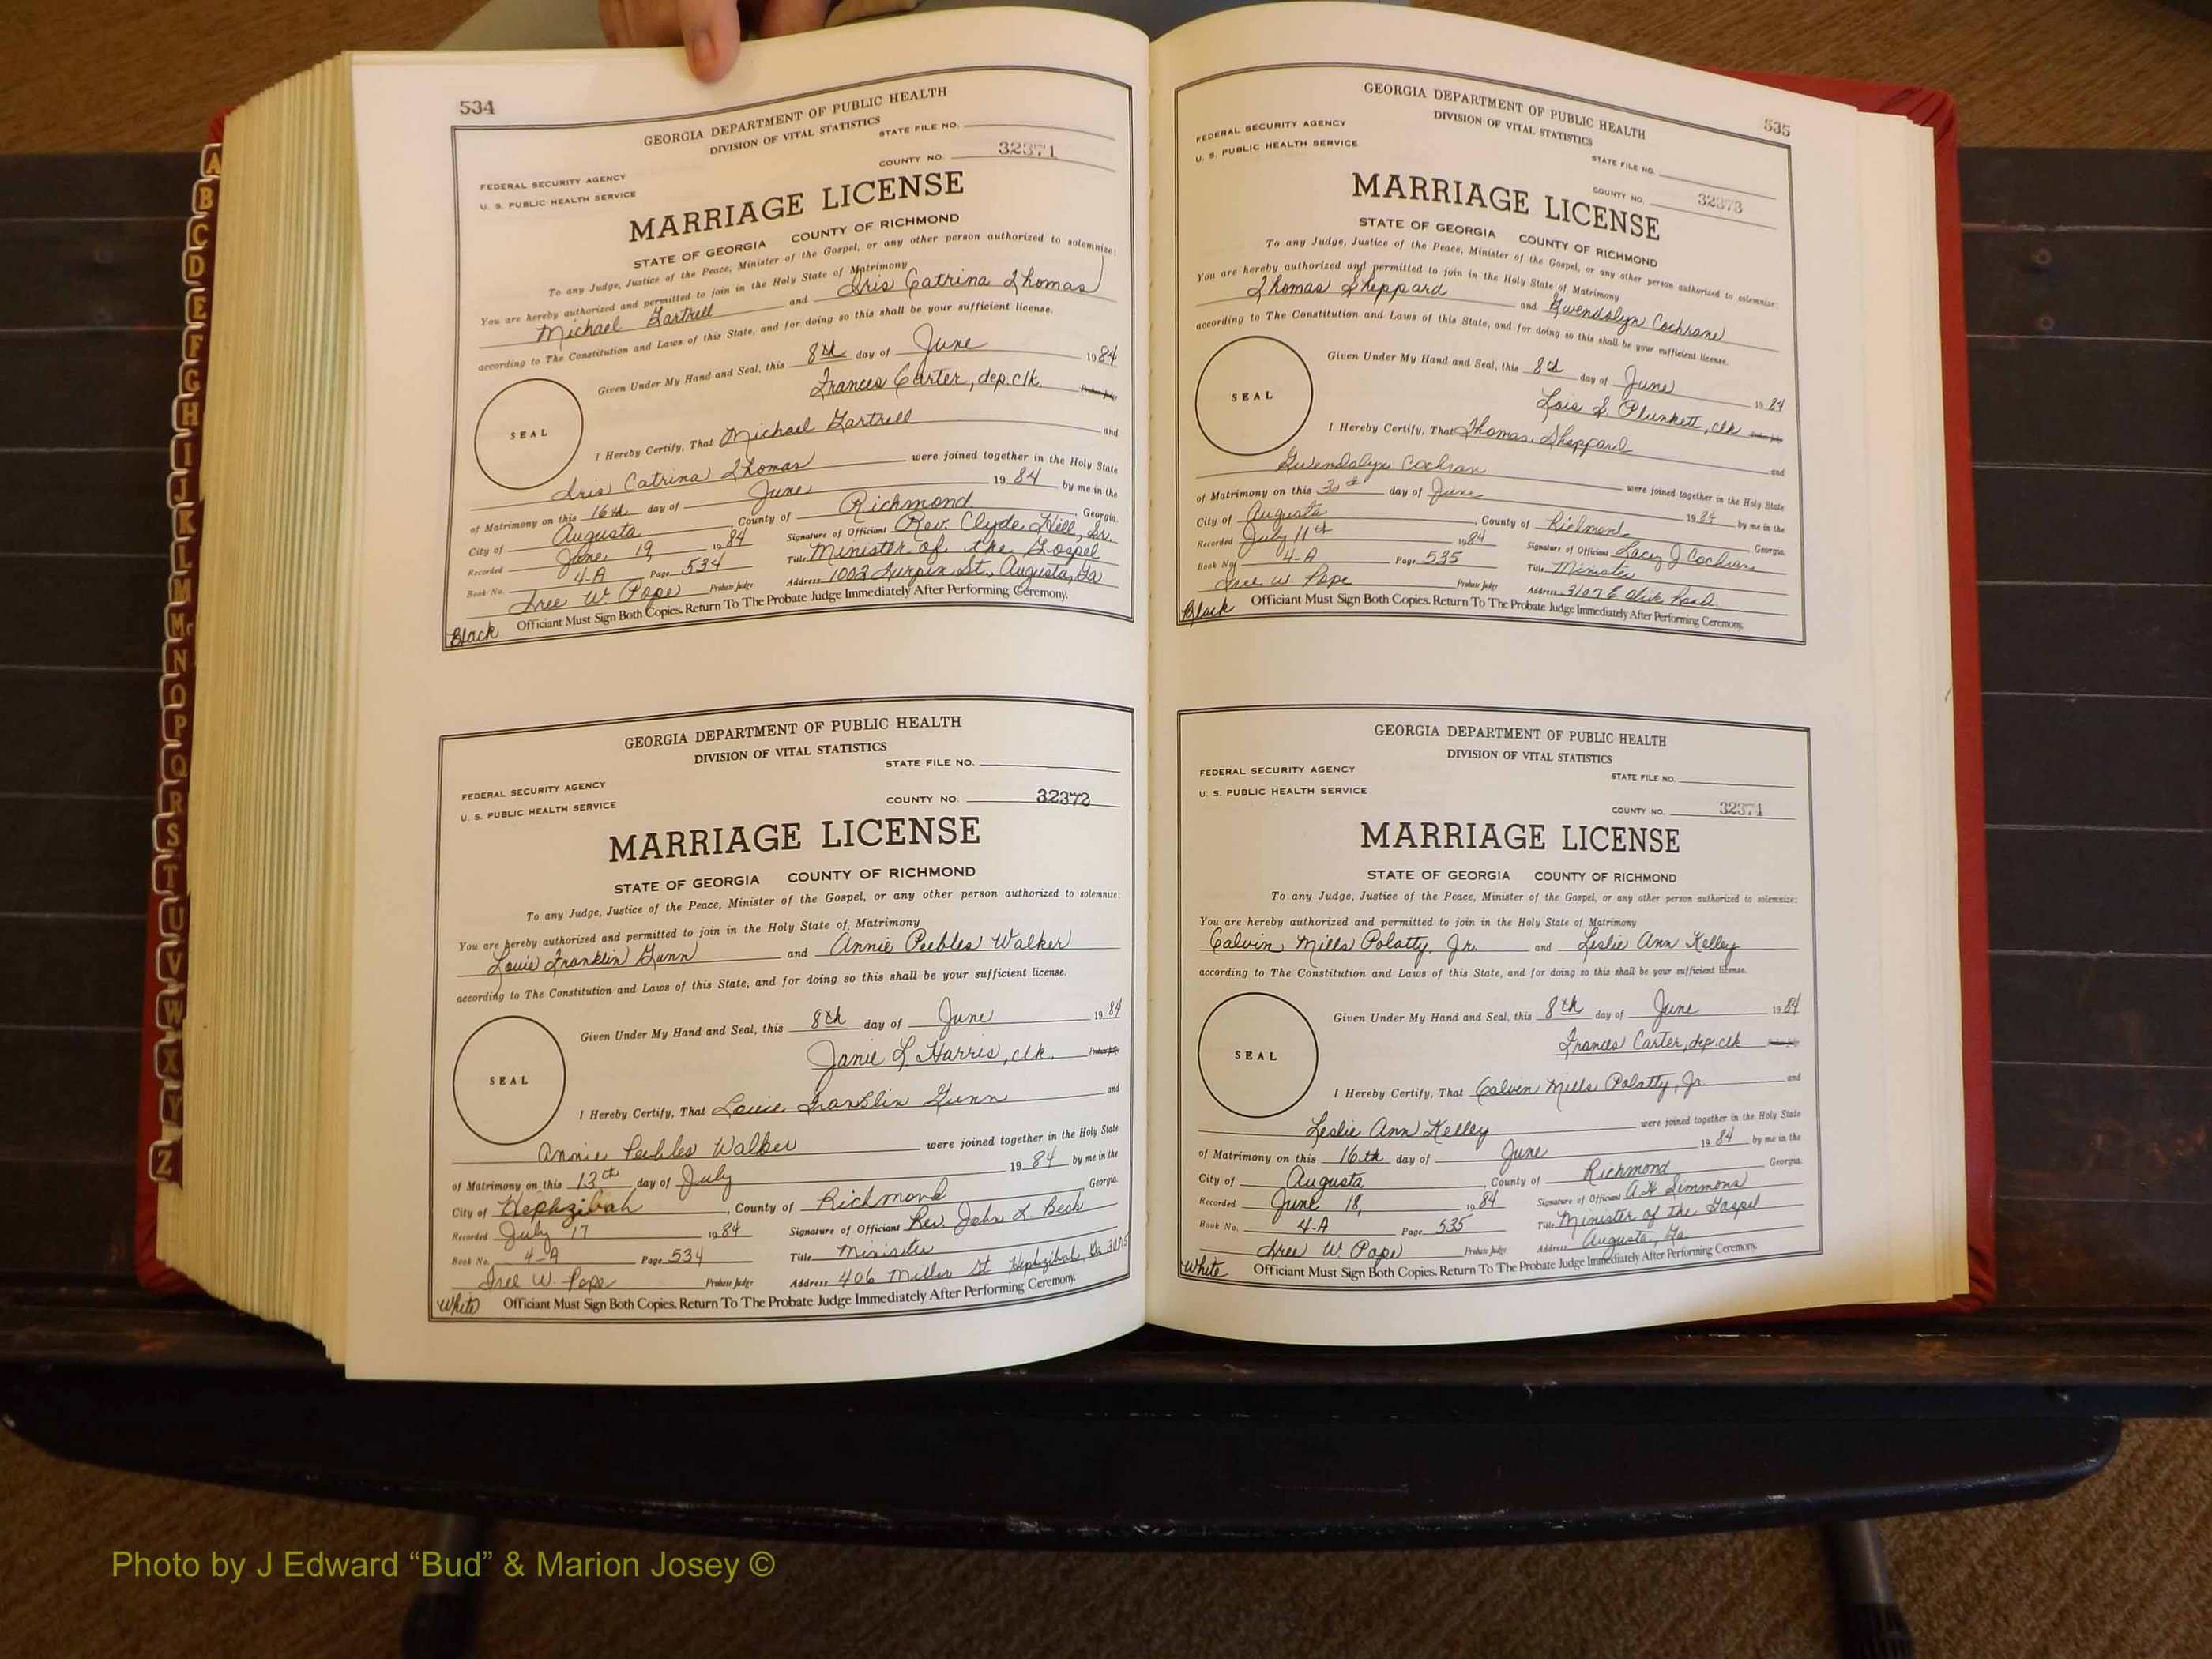 534
GEORGIA DEPARTMENT OF PUBLIC HEALTH
DIVISION OF VITAL STATISTICS
STATE FILE NO.
COUNTY NO. 32371
FEDERAL SECURITY AGENCY
U. S. PUBLIC HEALTH SERVICE
MARRIAGE LICENSE
STATE OF GEORGIA COUNTY OF RICHMOND
To any Judge, Justice of the Peace, Minister of the Gospel, or any other person authorized to solemnize:
You are hereby authorized and permitted to join in the Holy State of Matrimony
Michael Gartrell and Iris Catrina Thomas
according to The Constitution and Laws of this State, and for doing so this shall be your sufficient license.
Given Under My Hand and Seal, this 8th day of June 1984
Frances Carter, dep. clk. Probate Judge
SEAL
I Hereby Certify, That Michael Gartrell and
Iris Catrina Thomas were joined together in the Holy State
of Matrimony on this 16th day of June 1984 by me in the
City of Augusta, County of Richmond Georgia.
Recorded June 19, 1984 Signature of Officiant Rev. Clyde Hill, Sr.
Book No. 4-A Page 534 Title Minister of the Gospel
Iree W. Pope Probate Judge Address 1002 St., Augusta, Ga
Black Officiant Must Sign Both Copies. Return To The Probate Judge Immediately After Performing Ceremony.
GEORGIA DEPARTMENT OF PUBLIC HEALTH
DIVISION OF VITAL STATISTICS
STATE FILE NO.
FEDERAL SECURITY AGENCY
U. S. PUBLIC HEALTH SERVICE
COUNTY NO. 32372
MARRIAGE LICENSE
STATE OF GEORGIA COUNTY OF RICHMOND
To any Judge, Justice of the Peace, Minister of the Gospel, or any other person authorized to solemnize:
You are hereby authorized and permitted to join in the Holy State of Matrimony
Louie Franklin Gunn and Annie Peebles Walker
according to The Constitution and Laws of this State, and for doing so this shall be your sufficient license.
Given Under My Hand and Seal, this 8th day of June 1984
Janie L. Harris, clk. Probate Judge
SEAL
I Hereby Certify, That Louie Franklin Gunn and
Annie Peebles Walker were joined together in the Holy State
of Matrimony on this 13th day of July 1984 by me in the
City of Hephzibah, County of Richmond Georgia.
Recorded July 17 1984 Signature of Officiant Rev. John L. Beck
Book No. 4-A Page 534 Title Minister
Iree W. Pope Probate Judge Address 406 Miller St Hephzibah, Ga.
White Officiant Must Sign Both Copies. Return To The Probate Judge Immediately After Performing Ceremony.
535
GEORGIA DEPARTMENT OF PUBLIC HEALTH
DIVISION OF VITAL STATISTICS
FEDERAL SECURITY AGENCY
U. S. PUBLIC HEALTH SERVICE
STATE FILE NO.
COUNTY NO. 32373
MARRIAGE LICENSE
STATE OF GEORGIA COUNTY OF RICHMOND
To any Judge, Justice of the Peace, Minister of the Gospel, or any other person authorized to solemnize:
You are hereby authorized and permitted to join in the Holy State of Matrimony
Thomas Sheppard and Gwendolyn Cochrane
according to The Constitution and Laws of this State, and for doing so this shall be your sufficient license.
Given Under My Hand and Seal, this 8th day of June 1984
Lois S. Plunkett, clk Probate Judge
SEAL
I Hereby Certify, That Thomas Sheppard and
Gwendolyn Cochran were joined together in the Holy State
of Matrimony on this 30th day of June 1984 by me in the
City of Augusta, County of Richmond Georgia.
Recorded July 11th 1984 Signature of Officiant Lacey J Cochran
Book No. 4-A Page 535 Title Minister
Iree W Pope Probate Judge Address 3107 Road
Black Officiant Must Sign Both Copies. Return To The Probate Judge Immediately After Performing Ceremony.
GEORGIA DEPARTMENT OF PUBLIC HEALTH
DIVISION OF VITAL STATISTICS
FEDERAL SECURITY AGENCY
STATE FILE NO.
U. S. PUBLIC HEALTH SERVICE
COUNTY NO. 32374
MARRIAGE LICENSE
STATE OF GEORGIA COUNTY OF RICHMOND
To any Judge, Justice of the Peace, Minister of the Gospel, or any other person authorized to solemnize:
You are hereby authorized and permitted to join in the Holy State of Matrimony
Calvin Mills Polatty, Jr. and Leslie Ann Kelley
according to The Constitution and Laws of this State, and for doing so this shall be your sufficient license.
Given Under My Hand and Seal, this 8th day of June 1984
Frances Carter, dep. clk Probate Judge
SEAL
I Hereby Certify, That Calvin Mills Polatty, Jr. and
Leslie Ann Kelley were joined together in the Holy State
of Matrimony on this 16th day of June 1984 by me in the
City of Augusta, County of Richmond Georgia.
Recorded June 18, 1984 Signature of Officiant A H Simmons
Book No. 4-A Page 535 Title Minister of the Gospel
Iree W. Pope Probate Judge Address Augusta, Ga.
White Officiant Must Sign Both Copies. Return To The Probate Judge Immediately After Performing Ceremony.
A
B
C
D
E
F
G
H
I
J
K
L
M
Mc
N
O
P
Q
R
S
T
U
V
W
X
Y
Z
Photo by J Edward “Bud” & Marion Josey ©